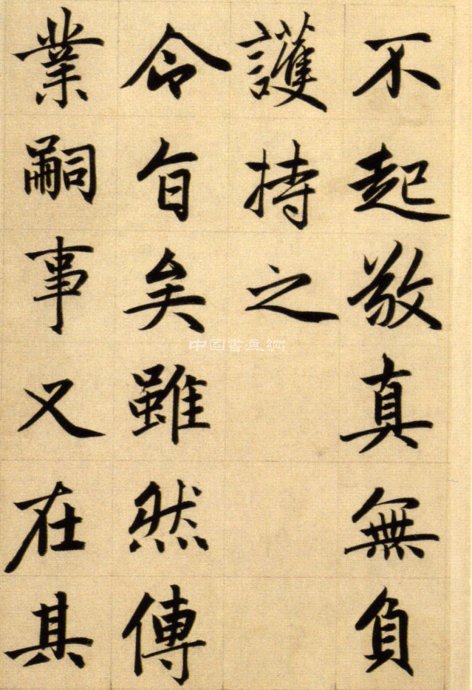 不起敬真無負
護持之
令旨矣雖然傳
業嗣事又在其
中国书画网